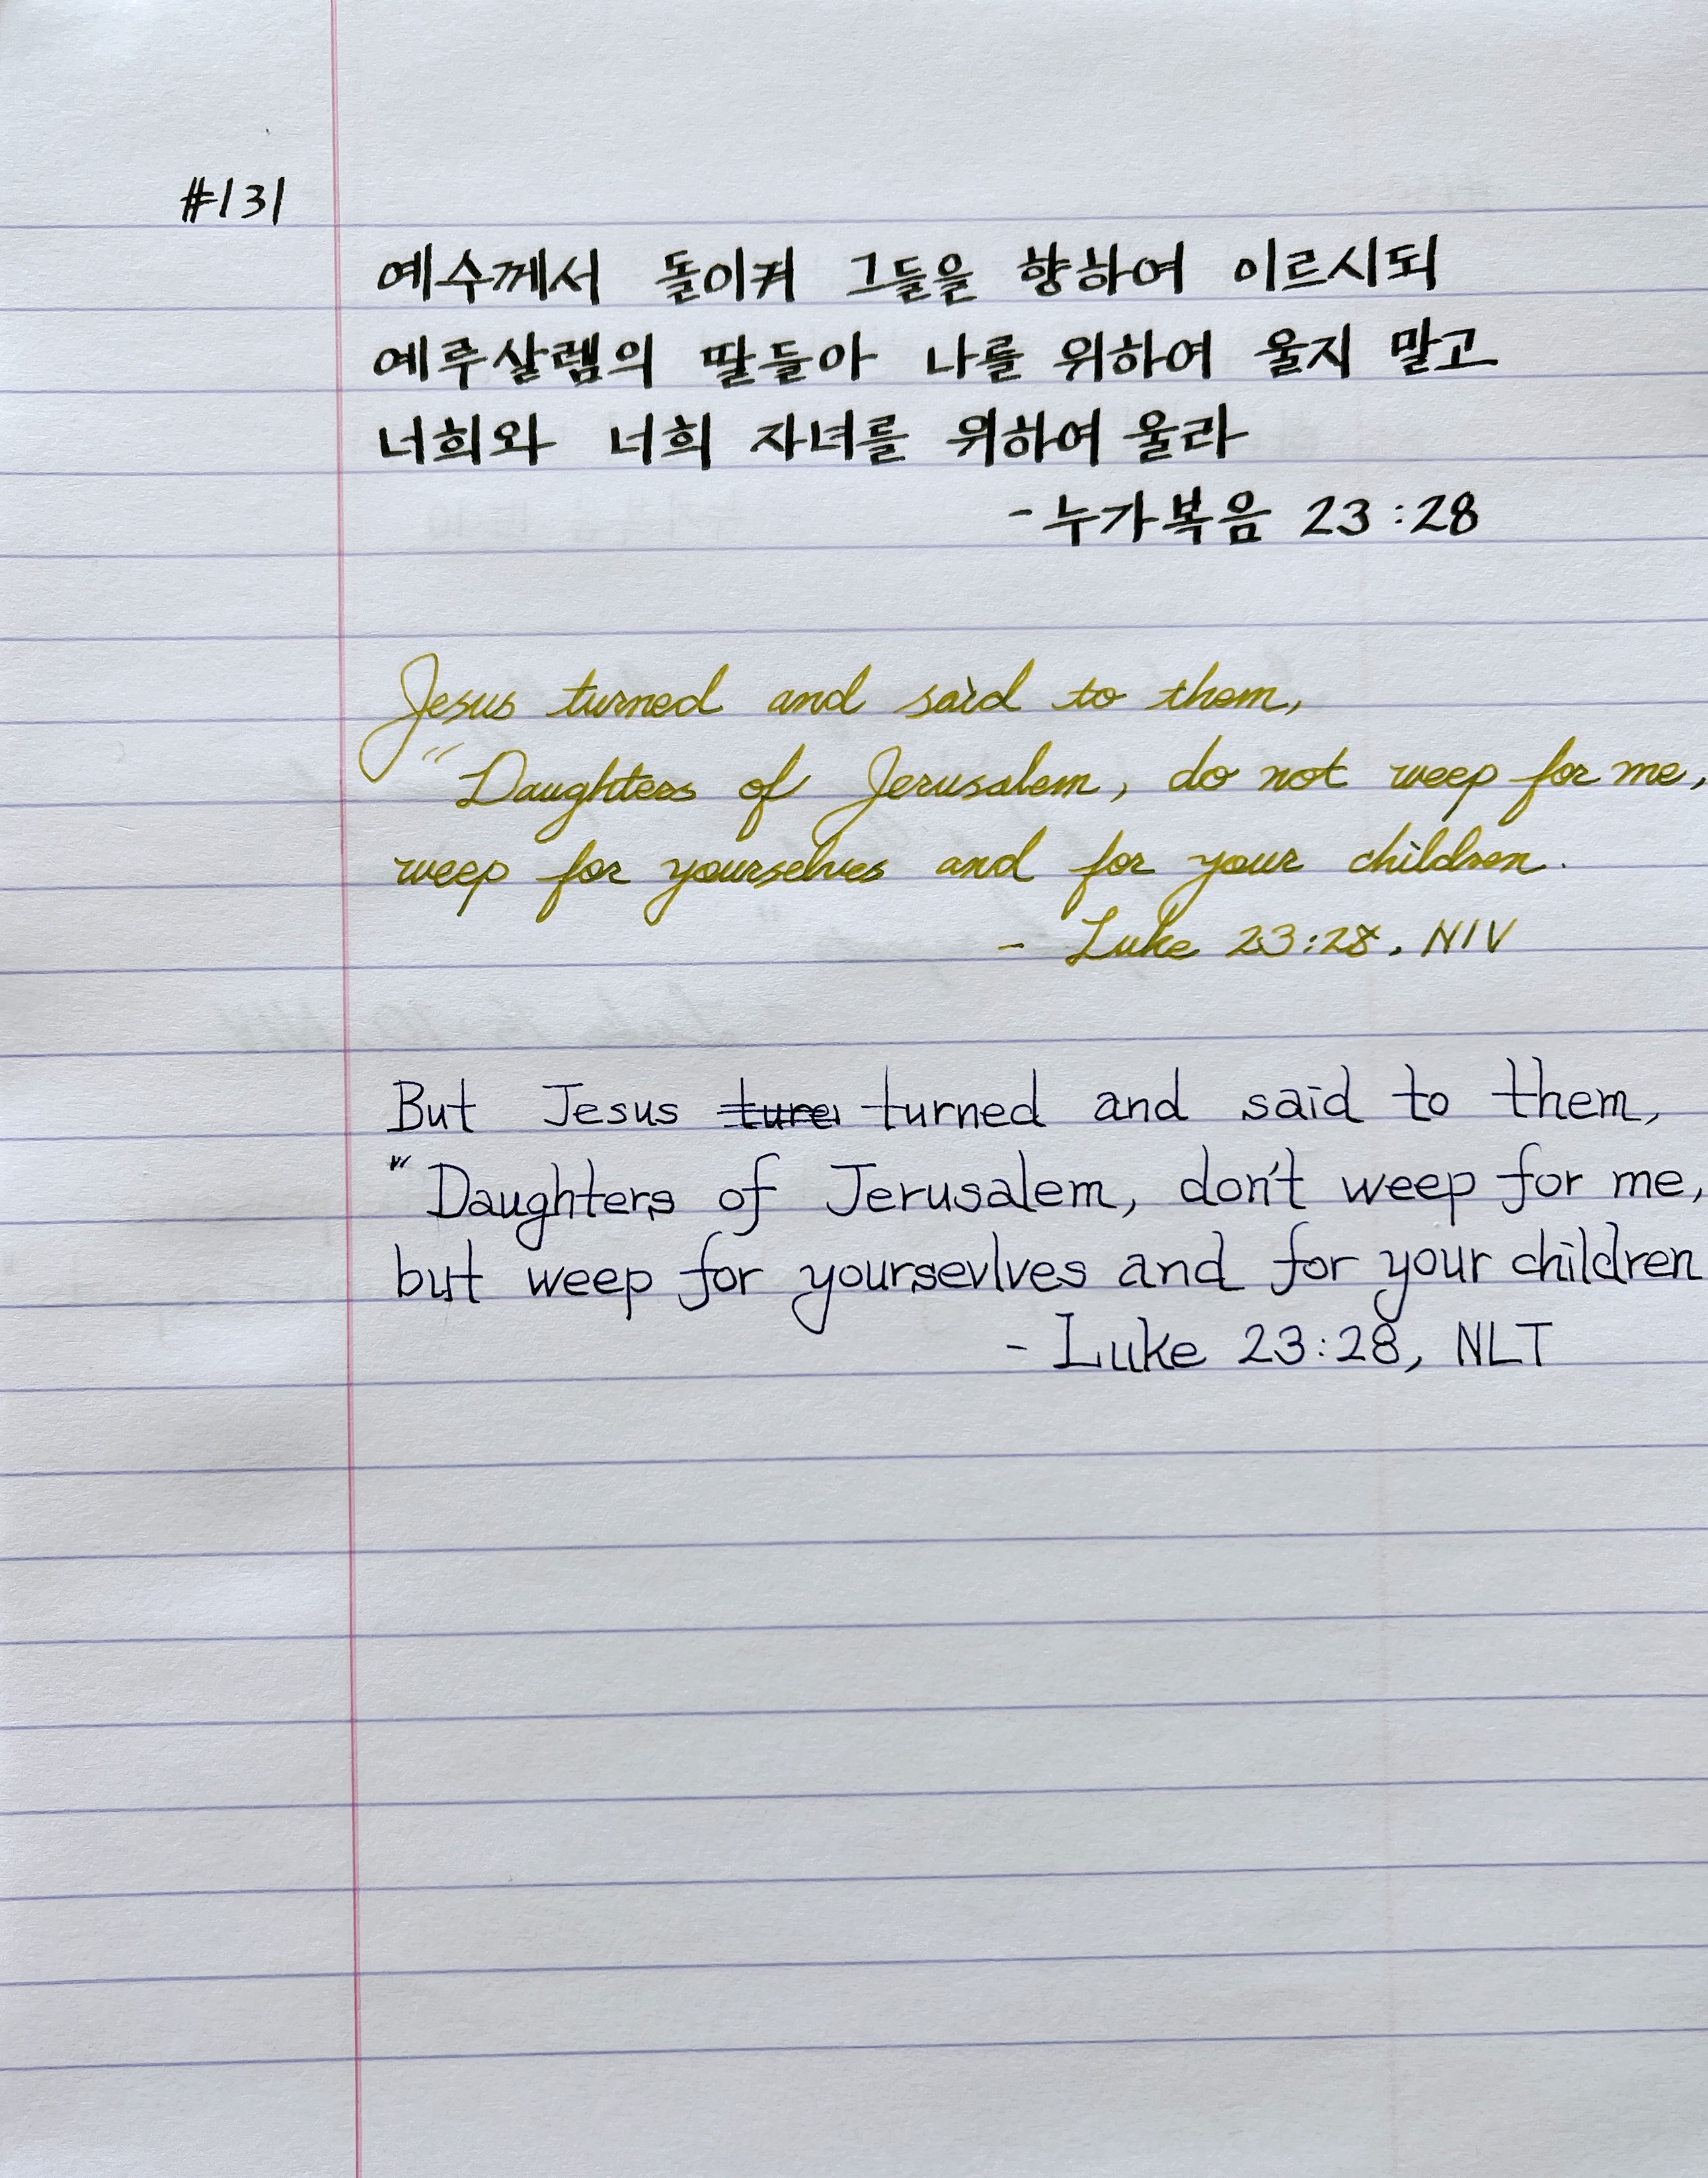 #131
예수께서 돌이켜 그들을 향하여 이르시되
예루살렘의 딸들아 나를 위하여 울지 말고
너희와 너희 자녀를 위하여 울라
- 누가복음 23:28
Jesus turned and said to them,
"Daughters of Jerusalem, do not weep for me,
weep for yourselves and for your children.
- Luke 23:28, NIV
But Jesus ture turned and said to them,
"Daughters of Jerusalem, don't weep for me,
but weep for yoursevlves and for your children
- Luke 23:28, NLT